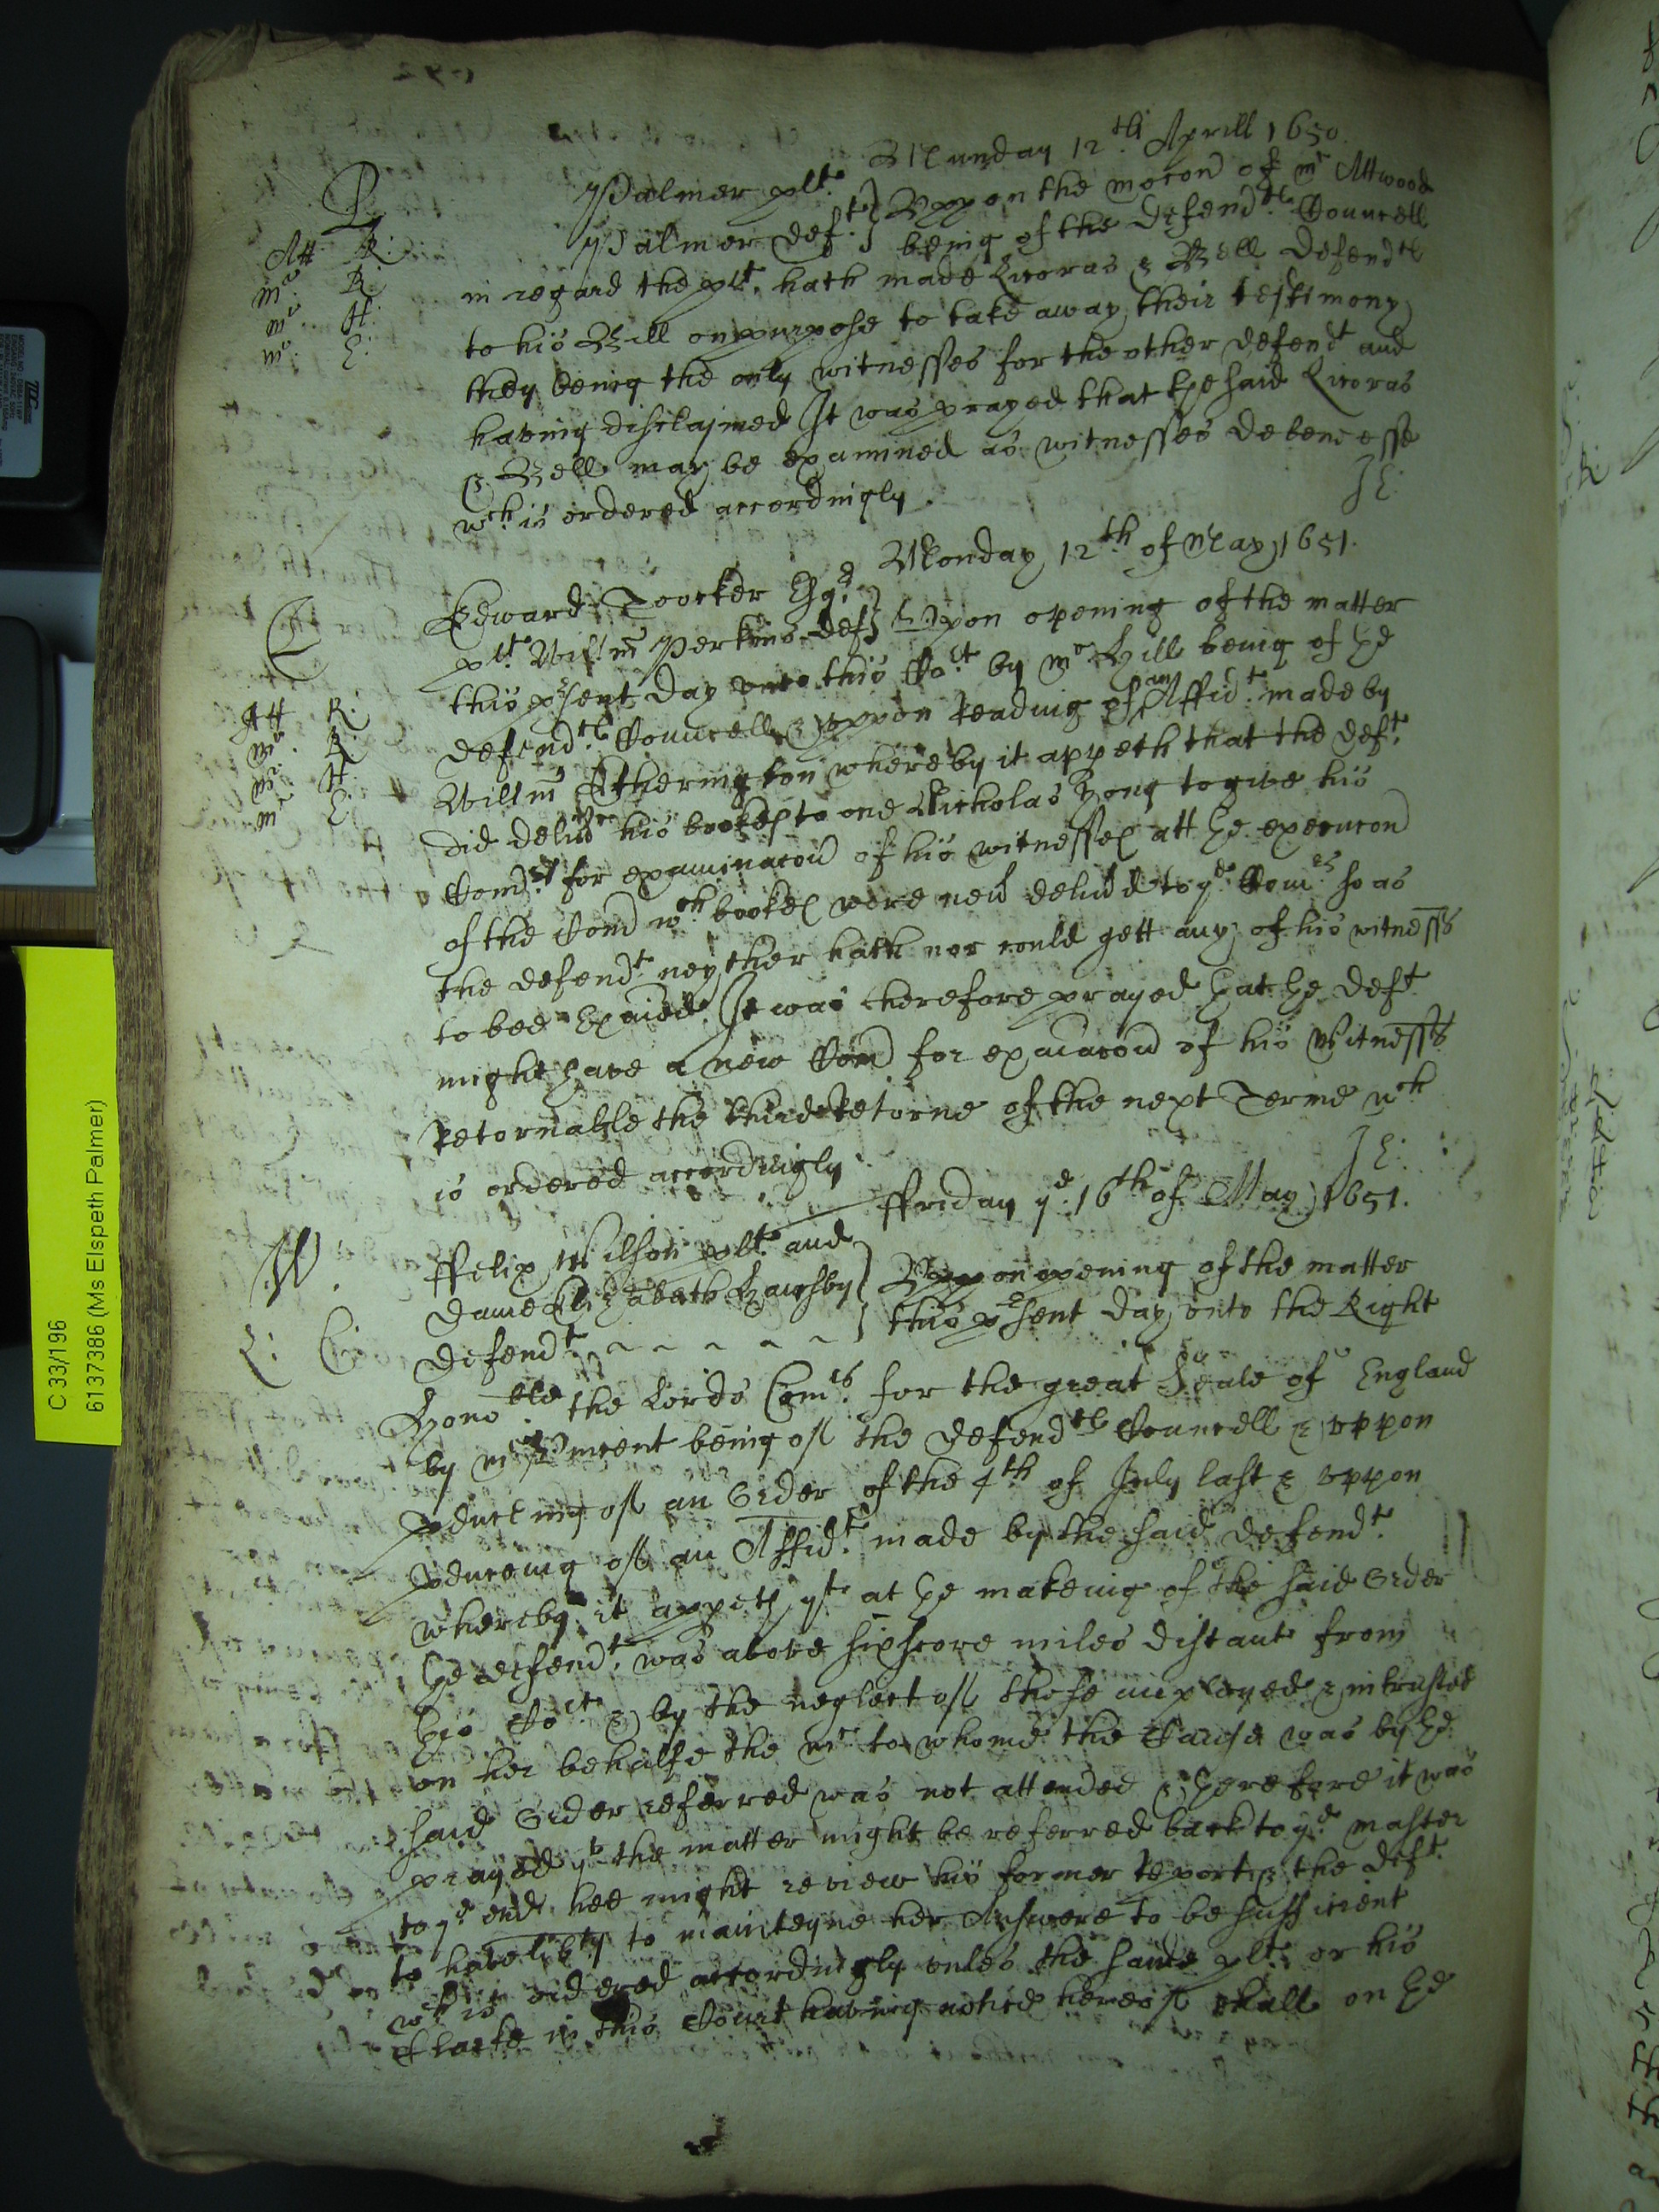 Munday 12th. Aprill 1650.
P Palmer plt.
Palmer deft. } Uppon the mocon of mr Attwood
Att R: being of the Defendtes Councell
mr. R: in regard the plt. hath made & Bell Defendtes
mr H: to his Bill on purpose to take away their testimony
mr: E: they being the only witnesses for the other Defendt and
having disclaymed It was prayed that the said
& Bell may be examined as witnesses de bene esse
wch. is ordered accordingly.
JE:
Monday 12th of May 1651.
Edward Toocker Esqr.
plt. Willm Perkins deft } Upon opening of the matter
this pesent day unto this Cort by mr Hill being of the
Att R: defendtes Councell & uppon Reading of an Affidt. made by
mr. R: Willm Etherington whereby it appeth that the deft.
mr. H: did deliver his bookes to one Nicholas Yong to give his
mr E: Comrs for examinacon of his witnesses att the execucon
of the Com wch bookes were nevr delivd to ye Comrs so as
the defendt neyther hath nor could gett any of his witnesses
to bee Exaied. It was therefore prayed that the deft
might have a new Com for exaiacon of his Witnesses
Retornable the third Retorne of the next Terme wch
is ordered accordingly.
JE:
ffriday ye. 16th of May 1651.
W ffelix Wilson plt. and
Dame Elizabeth } Uppon opening of the matter
Defendt. this pesent day unto the Right
Honoble the Lords Comrs. for the great Seale of England
by mr being of the defendtes Councell & uppon
pduceing of an Order of the 4th of July last & uppon
pduceing of an Affidt. made by the said defendt.
whereby it appeth yt at the makeing of the said Order
the defendt. was above sixscore miles distant from
this Cort & by the neglect of those imployed & intrusted
on her behalfe the mr to whome the Cause was by the
said Order referred was not attended & therefore it was
prayed yt the matter might be referred back to ye master
to ye end hee might review his former report & the deft.
to have libty to mainteyne her Answere to be sufficient
wch is ordered accordingly unles the said plt. or his
Clarke in this Court having notice hereof shall on the
C 33/196
6137386 (Ms Elspeth Palmer)